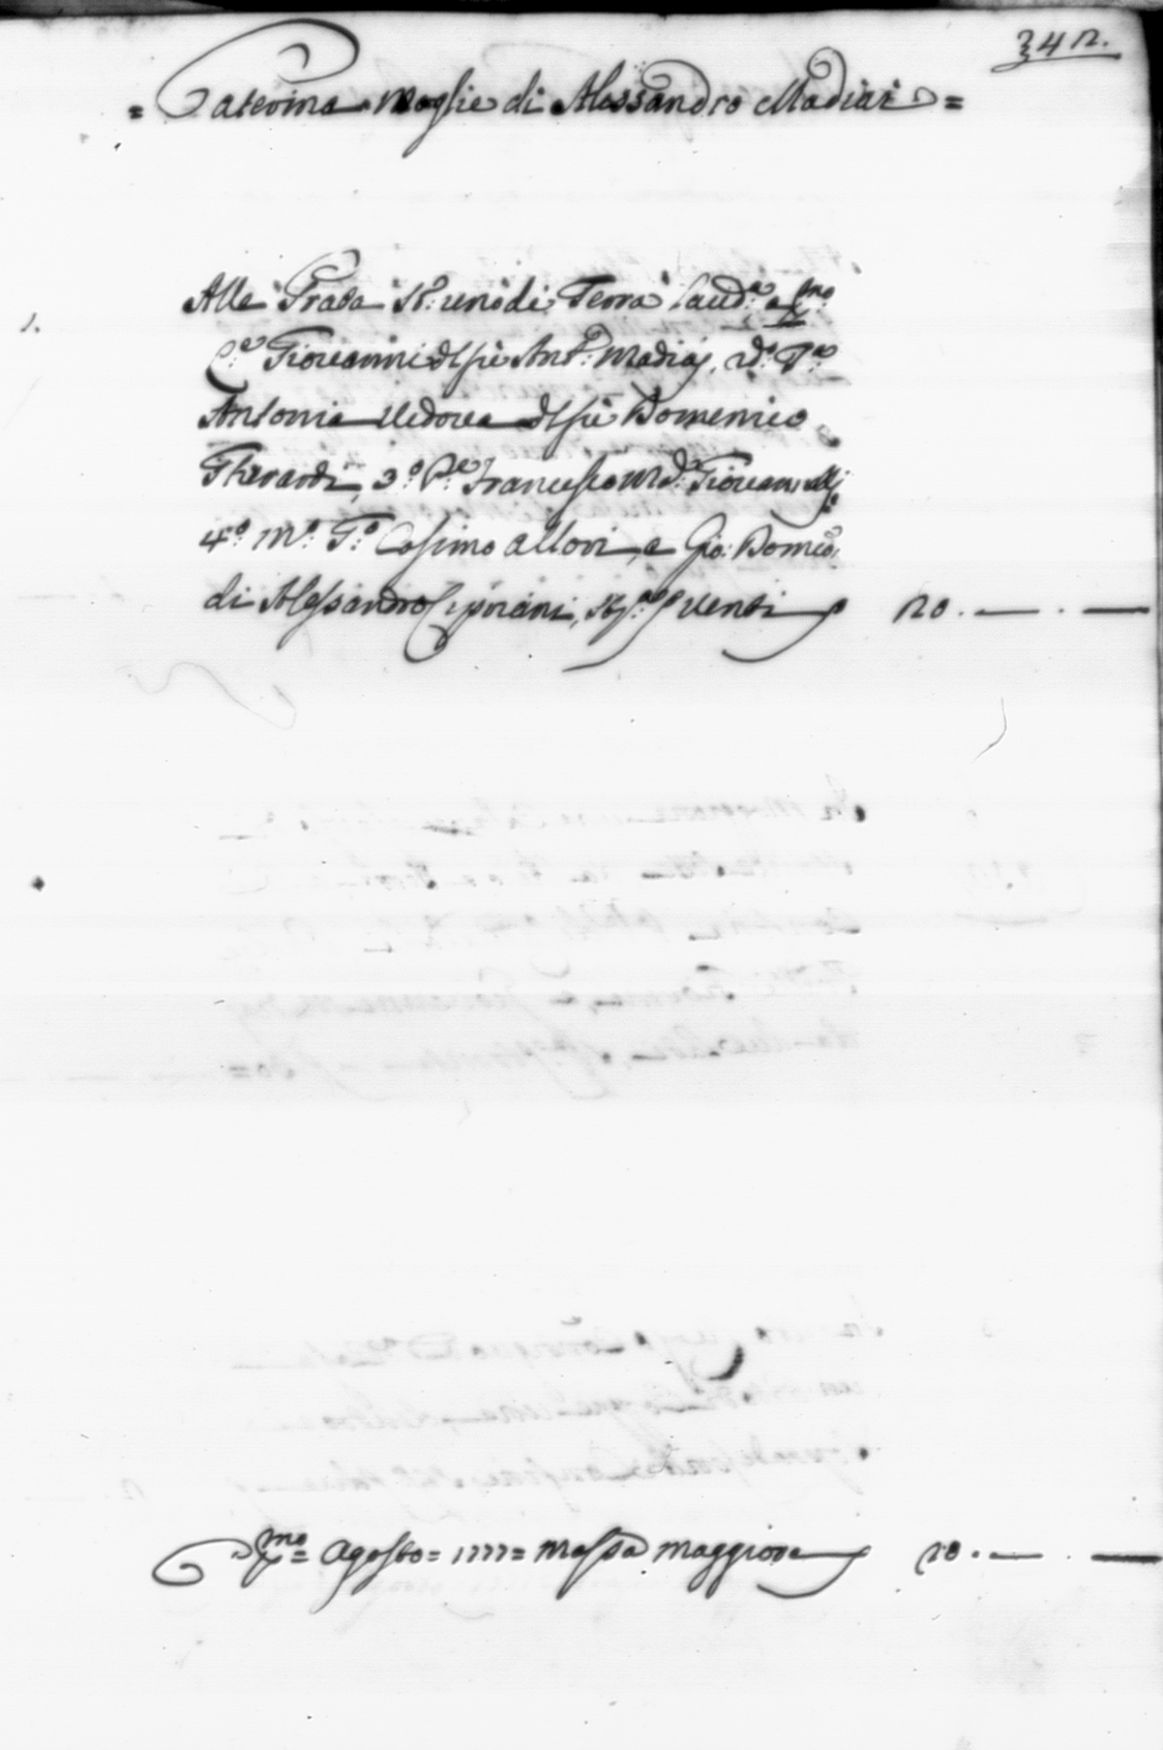 342.
= Caterina Moglie di Alessandro Madiai =
1. Alle Prata St: uno di Terra laud:a a p:mo
C:e Giovanni del fù Ant:o Madiai, 2d:o C:e
Antonia Vedova del fù Domenico
Gherardi, 3:o C:e Francesco M:a Giovannelli
4:o M:o G:o Cosimo Allori, e Gio: Dom:co
di Alessandro Cipriani, St:o Venti 20. — . —
p:mo = Agosto = 1777 = Massa Maggiore 20. — . —